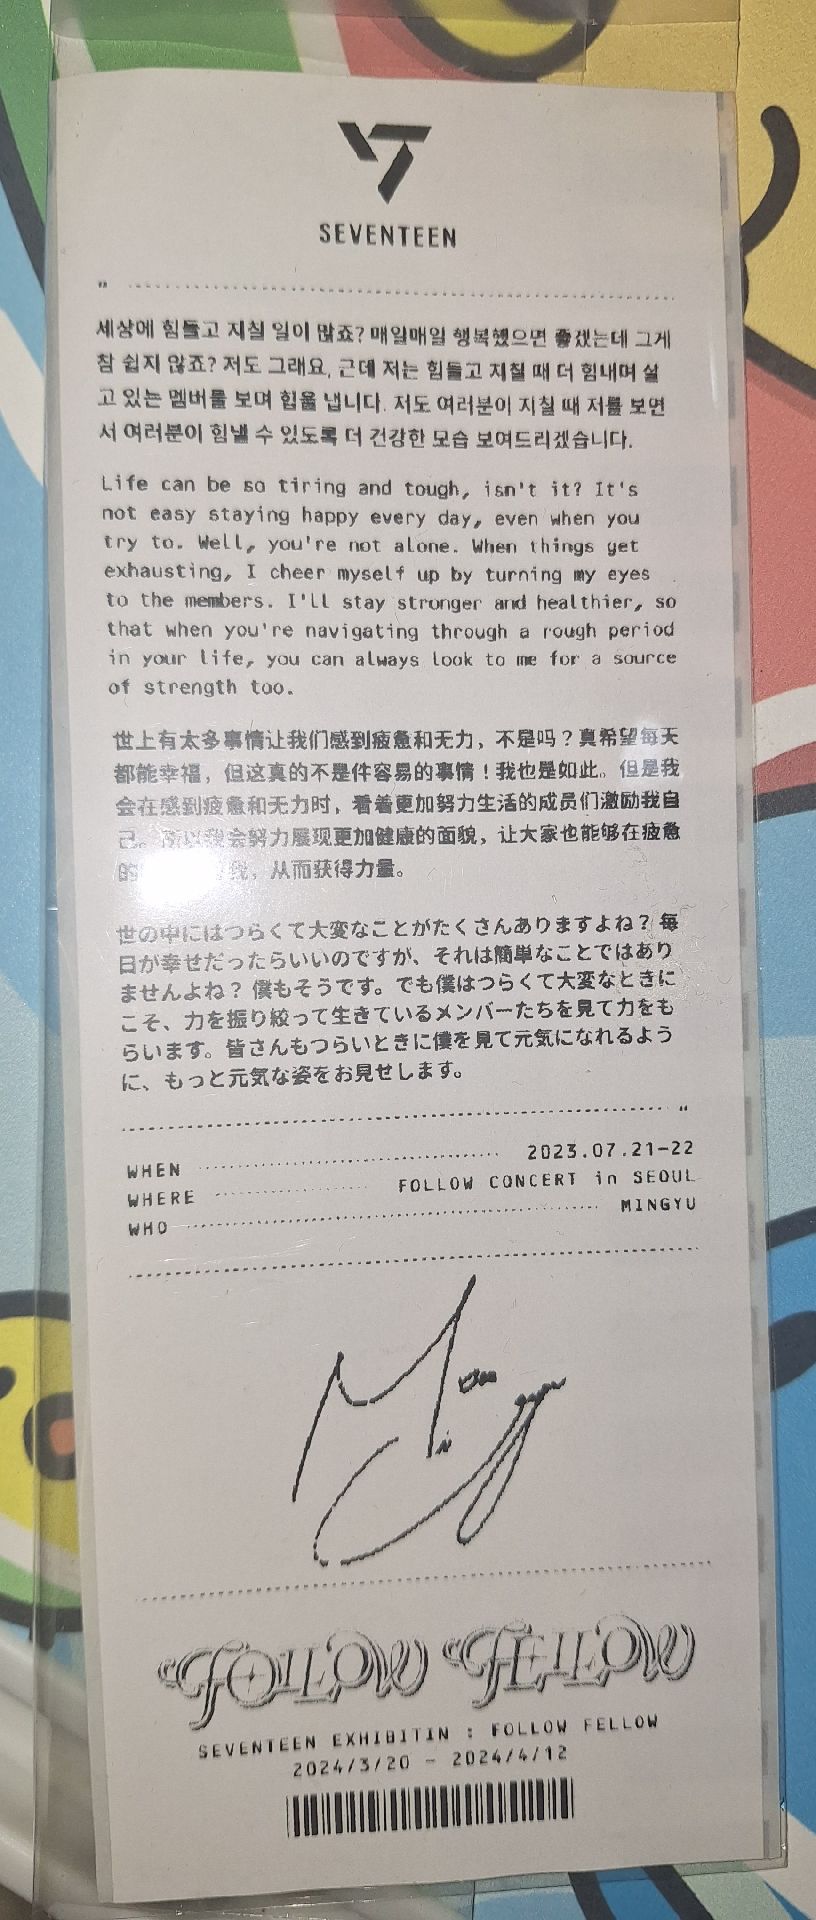 SEVENTEEN
"
세상에 힘들고 지칠 일이 많죠? 매일매일 행복했으면 좋겠는데 그게
참 쉽지 않죠? 저도 그래요. 근데 저는 힘들고 지칠 때 더 힘내며 살
고 있는 멤버를 보며 힘을 냅니다. 저도 여러분이 지칠 때 저를 보면
서 여러분이 힘낼 수 있도록 더 건강한 모습 보여드리겠습니다.
Life can be so tiring and tough, isn't it? It's
not easy staying happy every day, even when you
try to. Well, you're not alone. When things get
exhausting, I cheer myself up by turning my eyes
to the members. I'll stay stronger and healthier, so
that when you're navigating through a rough period
in your life, you can always look to me for a source
of strength too.
世上有太多事情让我们感到疲惫和无力，不是吗？真希望每天
都能幸福，但这真的不是件容易的事情！我也是如此。但是我
会在感到疲惫和无力时，看着更加努力生活的成员们激励我自
己。所以我会努力展现更加健康的面貌，让大家也能够在疲惫
的 我，从而获得力量。
世の中にはつらくて大変なことがたくさんありますよね？毎
日が幸せだったらいいのですが、それは簡単なことではあり
ませんよね？僕もそうです。でも僕はつらくて大変なときに
こそ、力を振り絞って生きているメンバーたちを見て力をも
らいます。皆さんもつらいときに僕を見て元気になれるよう
に、もっと元気な姿をお見せします。
"
WHEN 2023.07.21-22
WHERE FOLLOW CONCERT in SEOUL
WHO MINGYU
FOLLOW FELLOW
SEVENTEEN EXHIBITIN : FOLLOW FELLOW
2024/3/20 - 2024/4/12